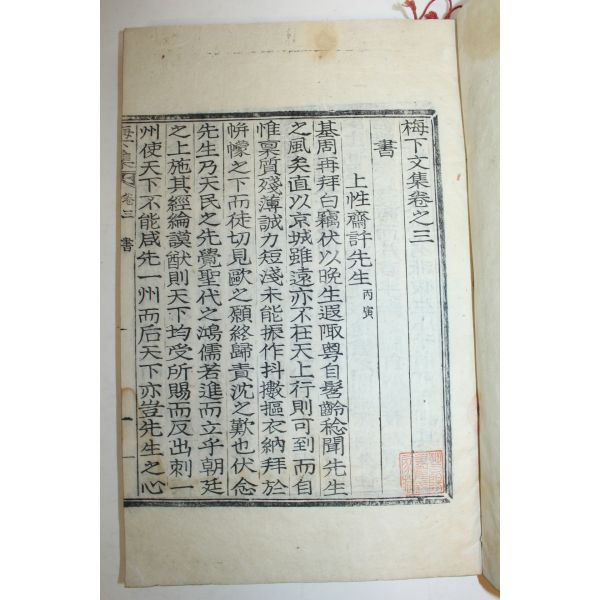 梅下文集卷之三
書
上性齋許先生 丙寅
基周再拜白竊伏以晚生遐陬粵自髫齡稔聞先生
之風矣直以京城雖遠亦不在天上行則可到而自
惟稟質殘薄誠力短淺未能振作抖擻摳衣納拜於
帡幪之下而徒切見歐之願終歸責沈之歎也伏念
先生乃天民之先覺聖代之鴻儒若進而立乎朝廷
之上施其經綸謨猷則天下均受所賜而反出刺一
州使天下不能咸先一州而后天下亦豈先生之心
梅下集 卷三 書 一